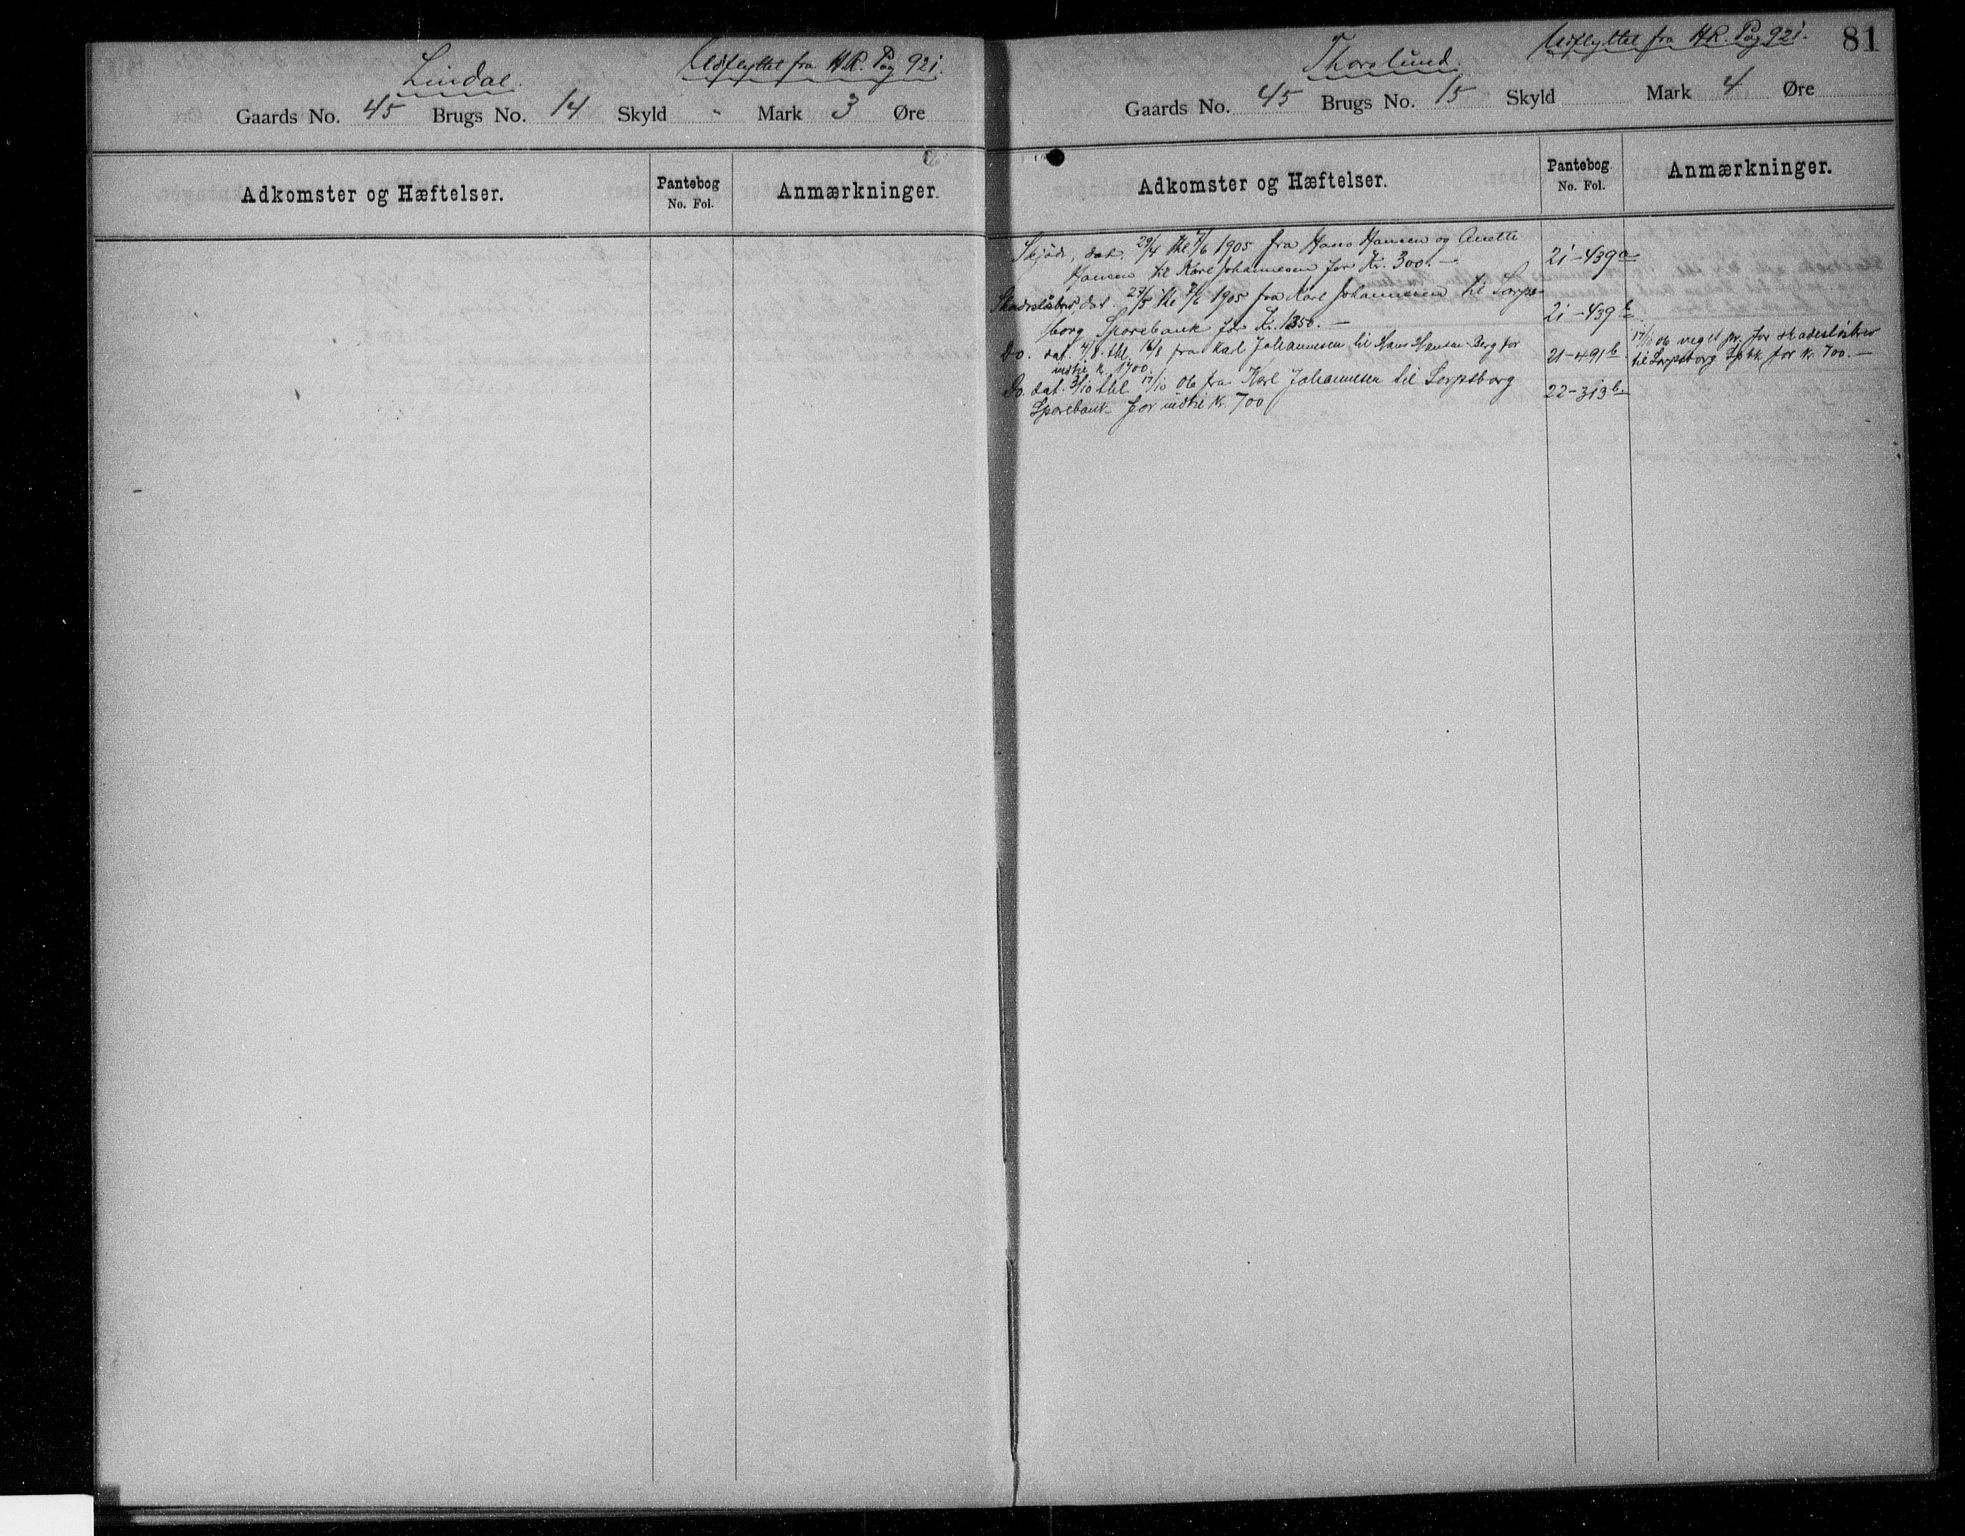 Lindal.
Udflyttet fra H.R. Pag 921.
Gaards No. 45 Brugs No. 14 Skyld - Mark 3 Øre
Adkomster og Hæftelser.
Pantebog
No. Fol.
Anmærkninger.
81
Thorslund.
Udflyttet fra H.R. Pag 921.
Gaards No. 45 Brugs No. 15 Skyld Mark 4 Øre
Adkomster og Hæftelser.
Pantebog
No. Fol.
Anmærkninger.
Skjøde, dat. 29/4 thl 7/6 1905 fra Hans Hansen og Anette
Hansen til Karl Johannesen for Kr. 300. —
21-439a
Skadesløsbr, dat. 27/5 thl 7/6 1905 fra Karl Johannesen til Sarps-
borg Sparebank for Kr. 1350. —
21-439b
Do. dat. 4/8 thl. 16/8 fra Karl Johannesen til Hans Hansen Berg for
indtil Kr. 1700.
21-491b
17/10 06 veget pr. for skadesløsbrev
til Sarpsborg Spbk for Kr. 700. —
Do. dat. 3/10 thl 17/10 06 fra Karl Johannesen til Sarpsborg
Sparebank for indtil Kr. 700
22-313b